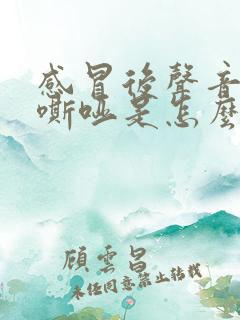 感冒後聲音
嘶啞是怎麼
顧雲昌
未經同意禁止轉載